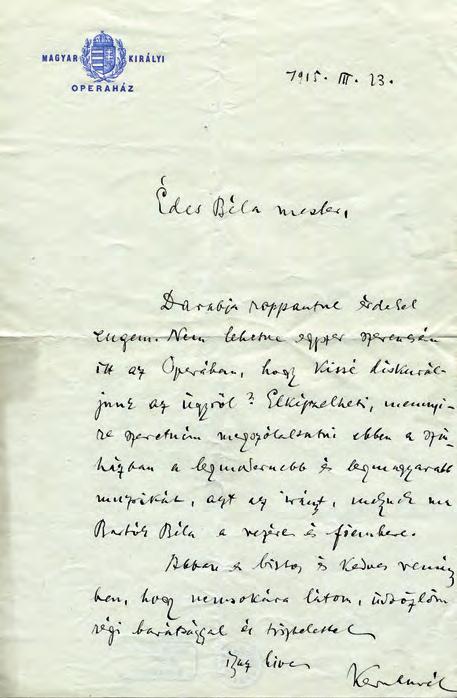 MAGYAR KIRÁLYI
OPERAHÁZ
1915. III. 23.
Édes Béla mester,
Darabja roppantul érdekel
engem. Nem lehetne egyszer szerencsém
itt az Operában, hogy kissé diskurál-
junk az ügyről? Elképzelheti, mennyi-
re szeretném megszólaltatni ebben a szín-
házban a legmodernebb és legmagyarabb
muzsikát, azt az irányt, melynek ma
Bartók Béla a vezére és főembere.
Abban a biztos és kedves remény
ben, hogy nemsokára látom, üdvözlöm
régi barátsággal és tisztelettel
igaz híve